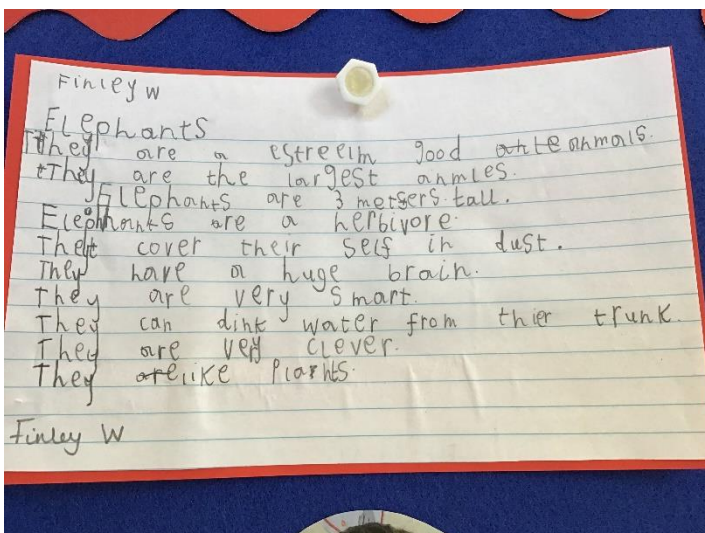 Finley W
Elephants
They are a estreeim good anmals.
They are the largest anmles.
Elephants are 3 metsers tall.
Elephants are a herbivore.
They cover their self in dust.
They have a huge brain.
They are very smart.
They can dink water from thier trunk.
They are very clever.
They like Plants.
Finley W